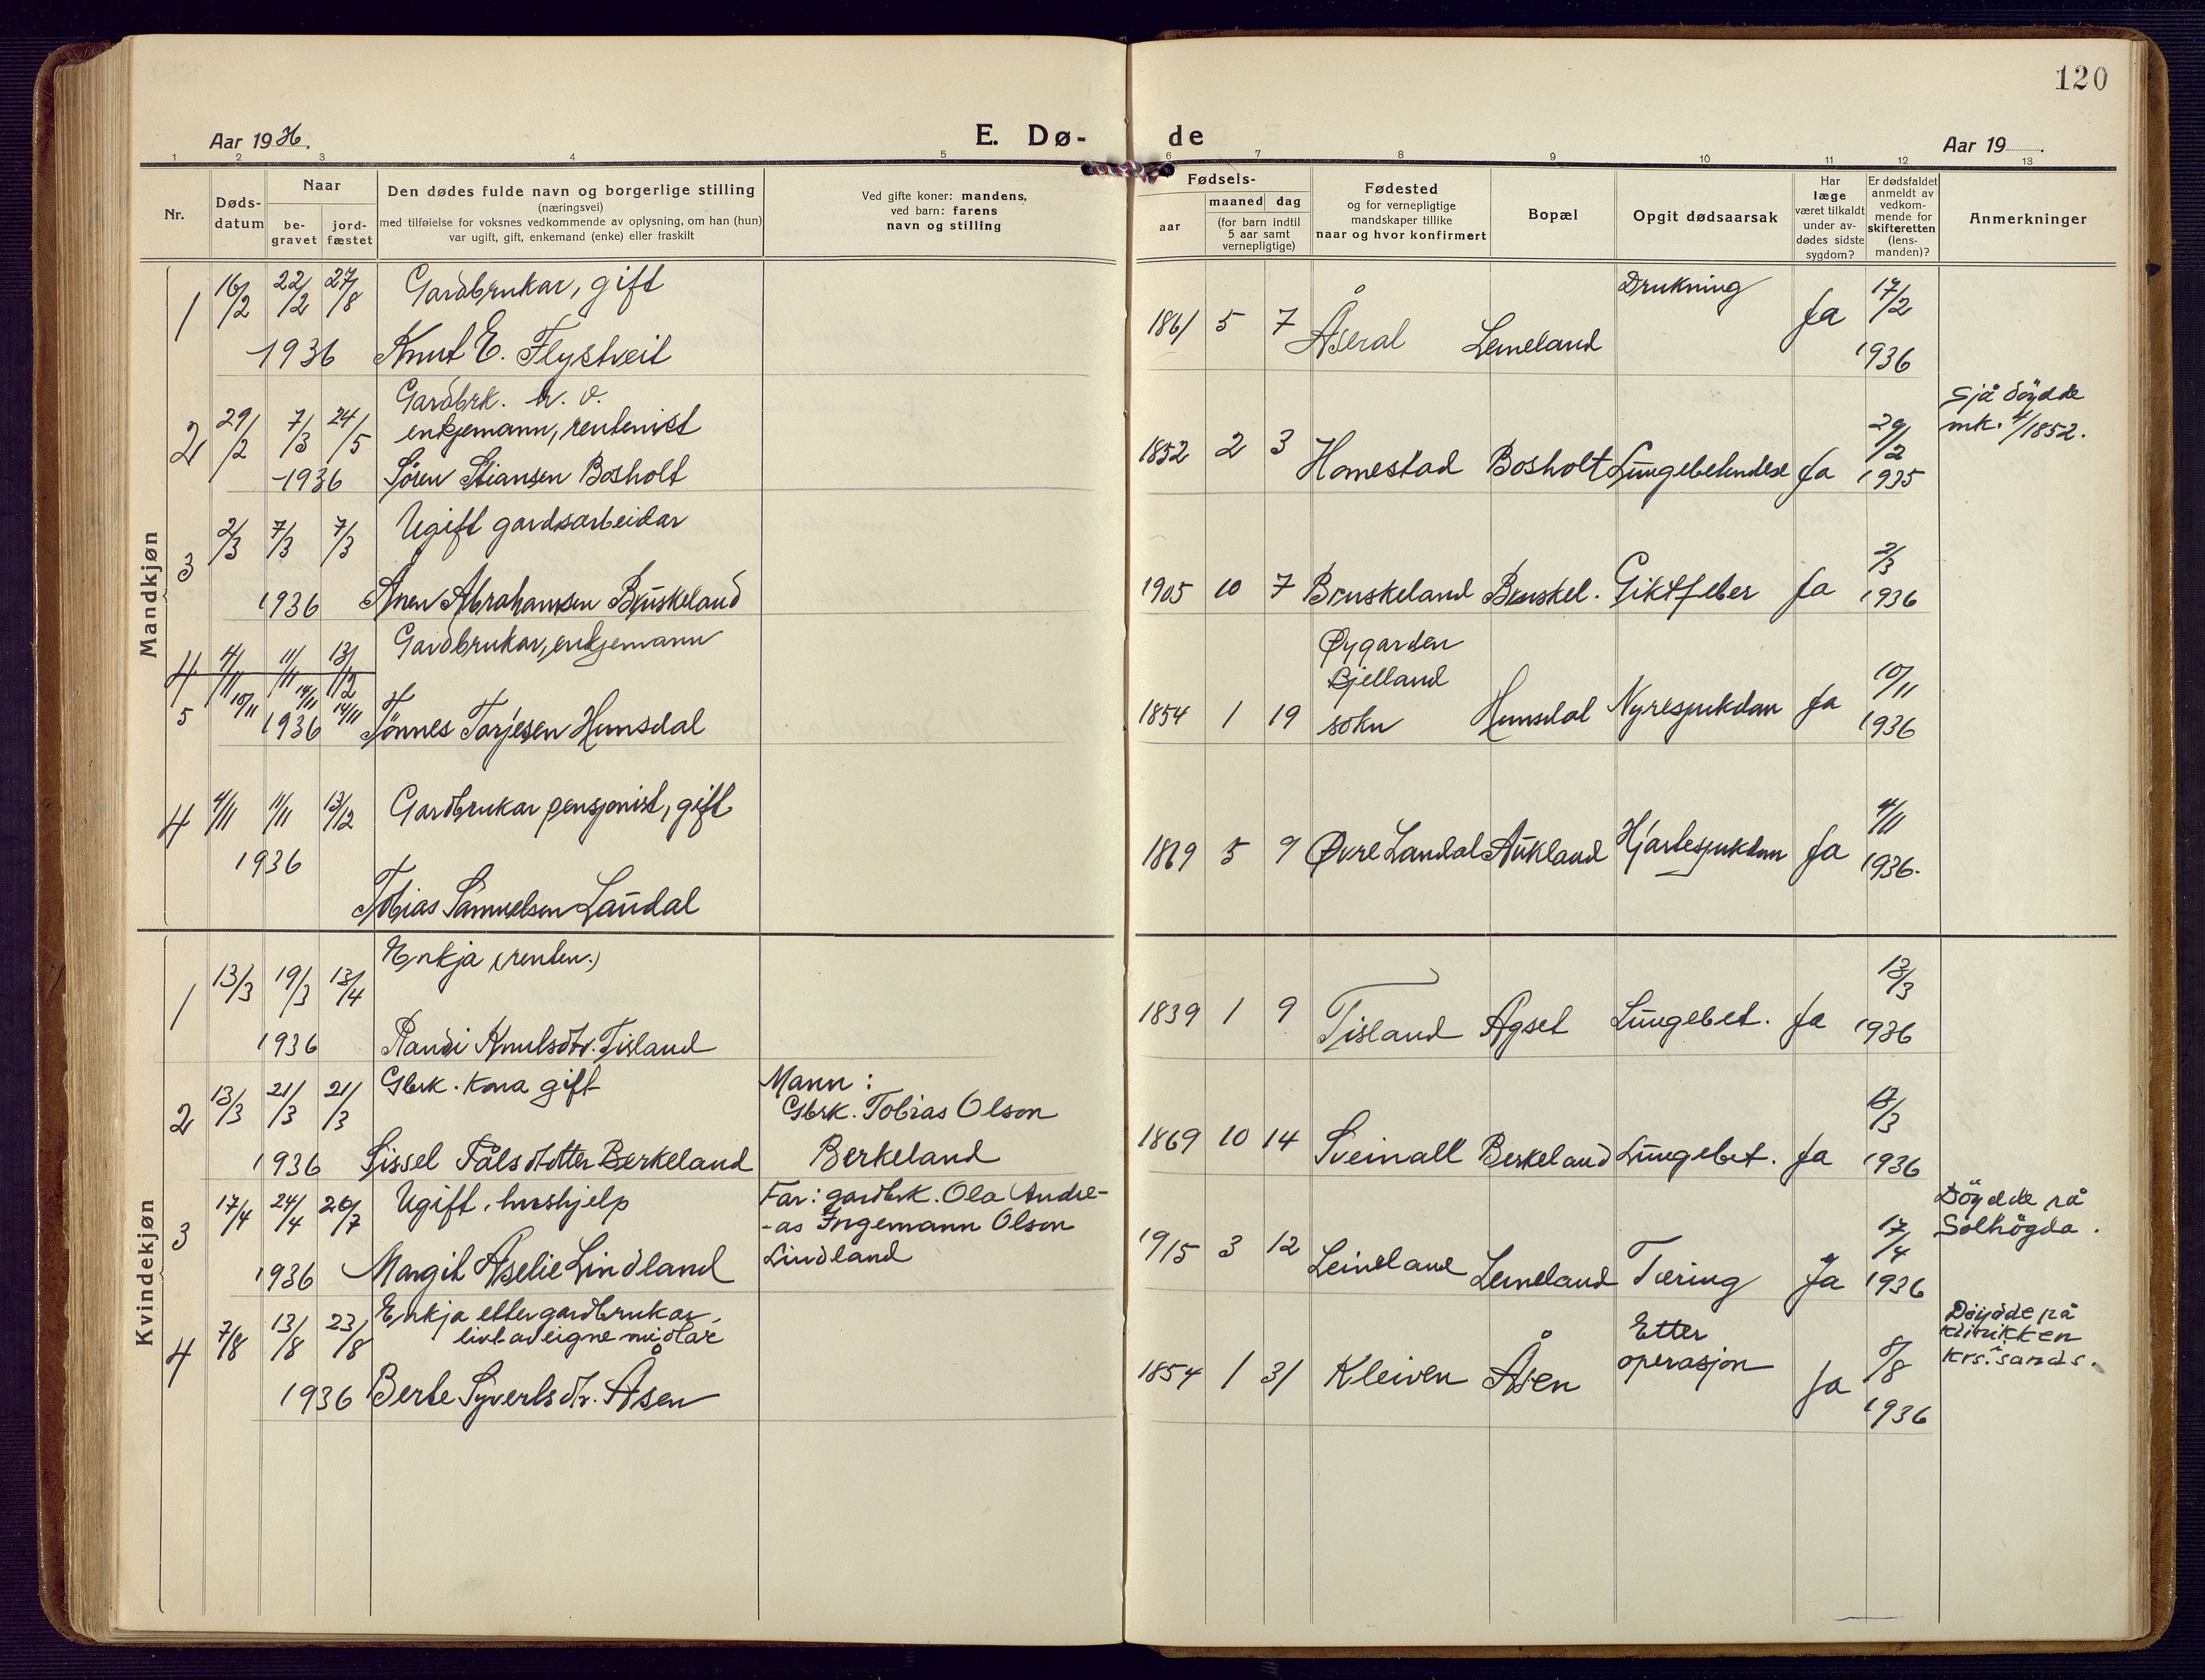 120
Aar 1936.
E. Dø-
de
Aar 19
1 2 3 4 5 6 7 8 9 10 11 12 13
Nr.
Døds-
datum
Naar
be-
gravet
jord-
fæstet
Den dødes fulde navn og borgerlige stilling
(næringsvei)
med tilføielse for voksnes vedkommende av oplysning, om han (hun)
var ugift, gift, enkemand (enke) eller fraskilt
Ved gifte koner: mandens,
ved barn: farens
navn og stilling
Fødsels-
aar
maaned dag
(for barn indtil
5 aar samt
vernepligtige)
Fødested
og for vernepligtige
mandskaper tillike
naar og hvor konfirmert
Bopæl
Opgit dødsaarsak
Har
læge
været tilkaldt
under av-
dødes sidste
sygdom?
Er dødsfaldet
anmeldt av
vedkom-
mende for
skifteretten
(lens-
manden)?
Anmerkninger
Mandkjøn
1 16/2 22/2 27/8 Gardbrukar, gift
1936 Knut E. Flystveit
1861 5 7 Åseral Leineland Drukning Ja 17/2
1936
2 29/2 7/3 24/5 Gardbrk. h. v.
enkjemann, rentenist
1936 Søren Stiansen Bosholt
1852 2 3 Homestad Bosholt Lungebetendese Ja 29/2
1935
Sjå döydde
mk. 4/1852.
3 2/3 7/3 7/3 Ugift gardsarbeidar
1936 Anen Abrahamsen Bruskeland
1905 10 7 Bruskeland Bruskel. Giktfeber Ja 2/3
1936
4 4/11 11/11 13/12 Gardbrukar, enkjemann
5 10/11 14/11 14/11
1936 Tønnes Tarjesen Hunsdal
1854 1 19 Øygarden
Bjelland
sokn
Hunsdal Nyresjukdom Ja 10/11
1936
4 4/11 11/11 13/12 Gardbrukar pensjonist, gift
1936
Tobias Samuelsen Laudal
1869 5 9 Øvre Laudal Aukland Hjartesjukdom Ja 4/11
1936.
Kvindekjøn
1 13/3 19/3 13/4 Enkja (renten.)
1936 Randi Knutsdtr. Tisland
1839 1 9 Tisland Agset Lungebet. Ja 13/3
1936
2 13/3 21/3 21/3 Gbrk. kona gift
1936 Sissel Pålsdotter Berkeland
Mann:
Gbrk. Tobias Olson
Berkeland
1869 10 14 Sveinall Berkeland Lungebet. Ja 13/3
1936
3 17/4 24/4 26/7 Ugift, hushjelp
1936 Margit Aselie Lindland
Far: gardbrk. Ola Andre-
-as Ingemann Olson
Lindland
1915 3 12 Leineland Leineland Tæring Ja 17/4
1936
Döydde på
Solhögda.
4 7/8 13/8 23/8 Enkja etter gardbrukar,
livt. av eigne midlar
1936 Berte Syvertsdtr. Åsen
1854 1 31 Kleiven Åsen Etter
operasjon
Ja 8/8
1936
Döydde på
klinikken
Krs.sands.